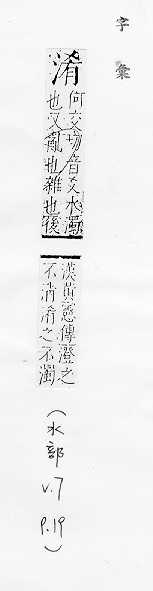 字彙
淆
何交切音爻水濁
也又亂也雜也後
漢黃憲傳澄之
不清淆之不濁
(水部
V.7
P.19)